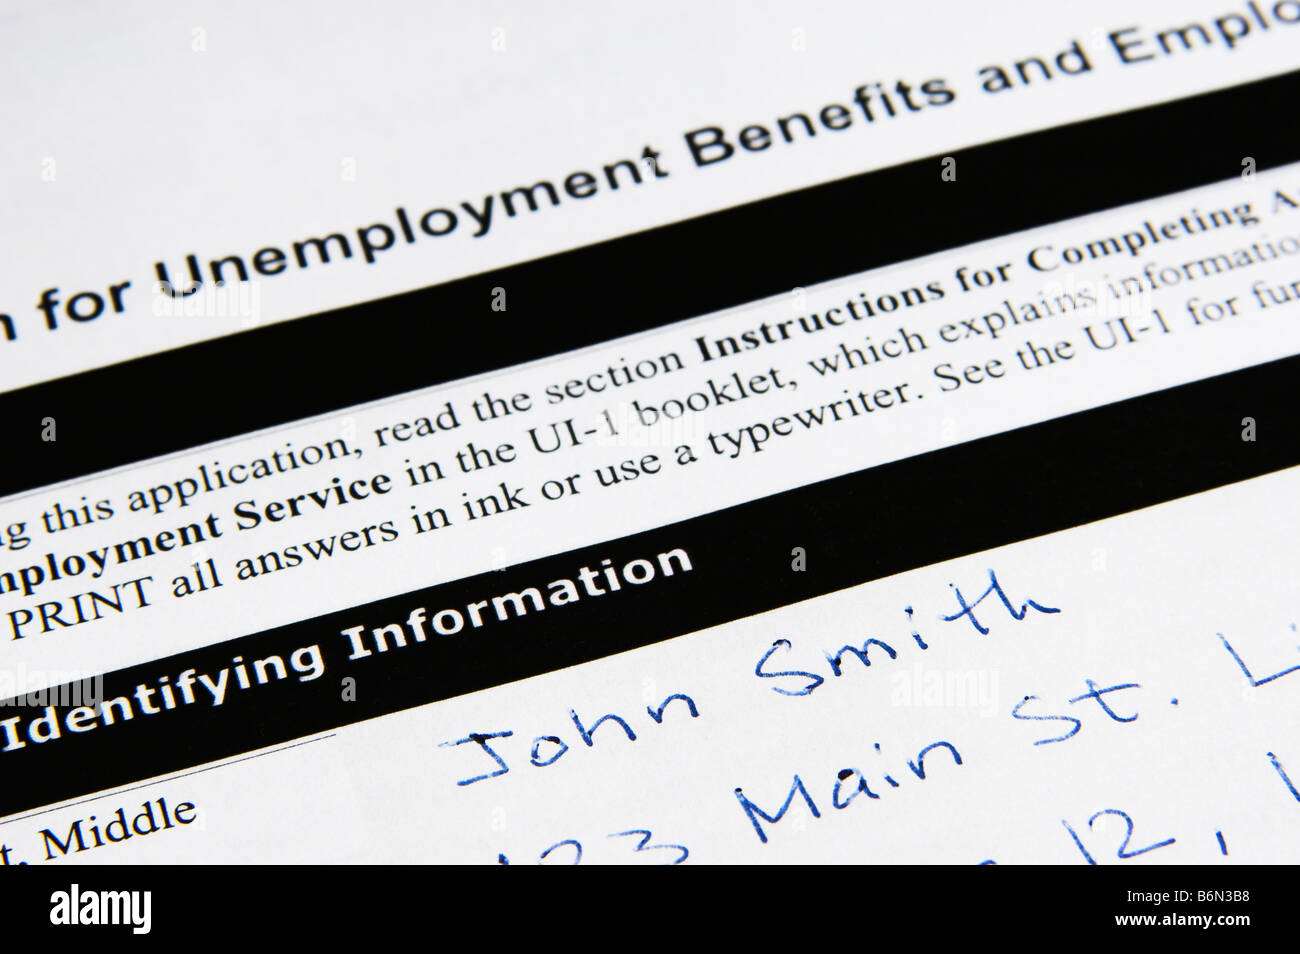 for Unemployment Benefits and
this application, read the section Instructions for Completing
Service in the UI-1 booklet, which explains
PRINT all answers in ink or use a typewriter. See the UI-1 for
Identifying Information
John Smith
Middle
123 Main St.
12,
alamy
B6N3B8
www.alamy.com